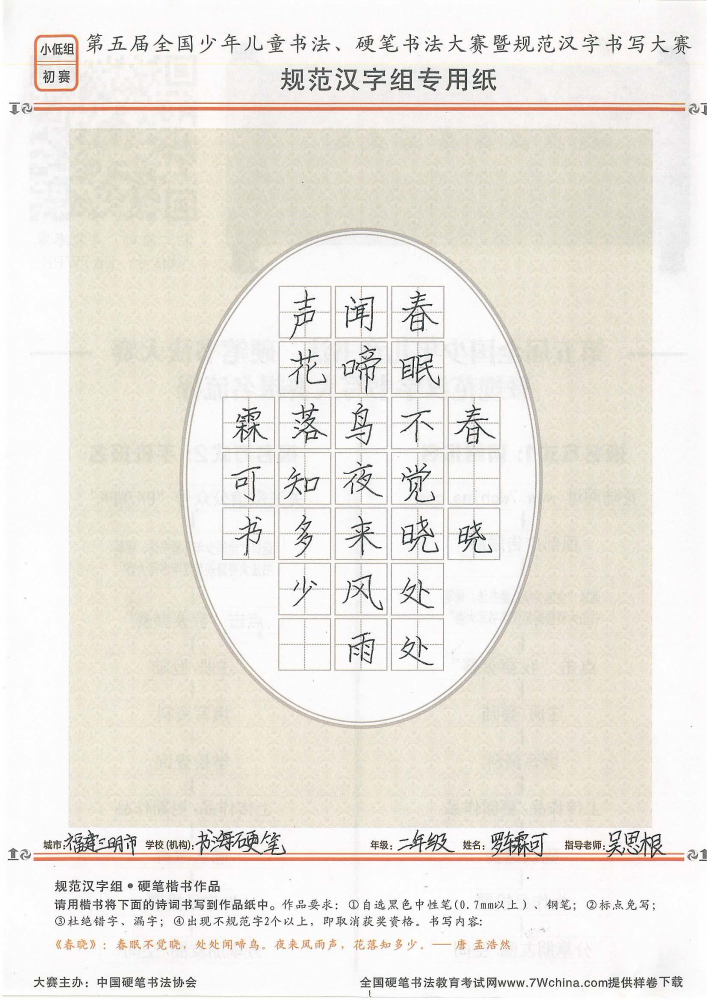 小低组
初赛
第五届全国少年儿童书法、硬笔书法大赛暨规范汉字书写大赛
规范汉字组专用纸
春晓
春眠不觉晓处处
闻啼鸟夜来风雨
声花落知多少
霖可书
城市:福建三明市 学校(机构):书海硬笔 年级:二年级 姓名:罗霖可 指导老师:吴思根
规范汉字组•硬笔楷书作品
请用楷书将下面的诗词书写到作品纸中。作品要求:①自选黑色中性笔(0.7mm以上)、钢笔;②标点免写;
③杜绝错字、漏字;④出现不规范字2个以上,即取消获奖资格。书写内容:
《春晓》:春眠不觉晓,处处闻啼鸟。夜来风雨声,花落知多少。——唐 孟浩然
大赛主办:中国硬笔书法协会 全国硬笔书法教育考试网www.7Wchina.com提供样卷下载